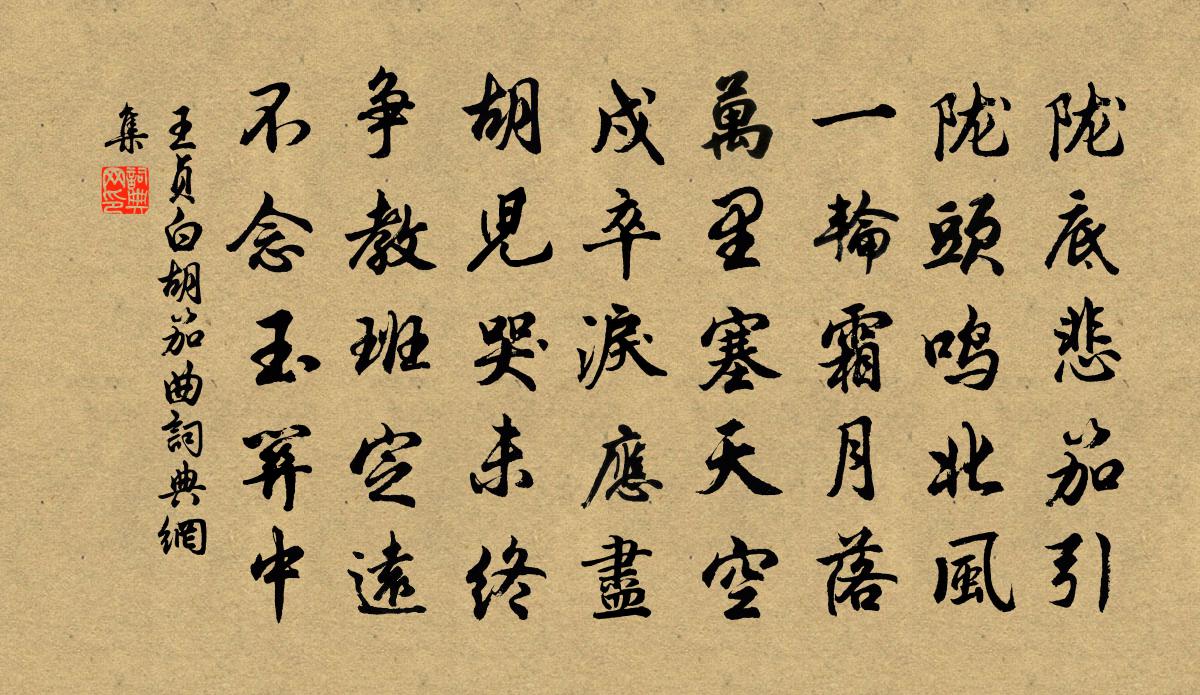 陇底悲笳引
陇頭鸣北風
一輪霜月落
萬里塞天空
戍卒淚應盡
胡児哭未終
争教班定遠
不念玉関中
王貞白胡笳曲詞典網
集
詞典
网印